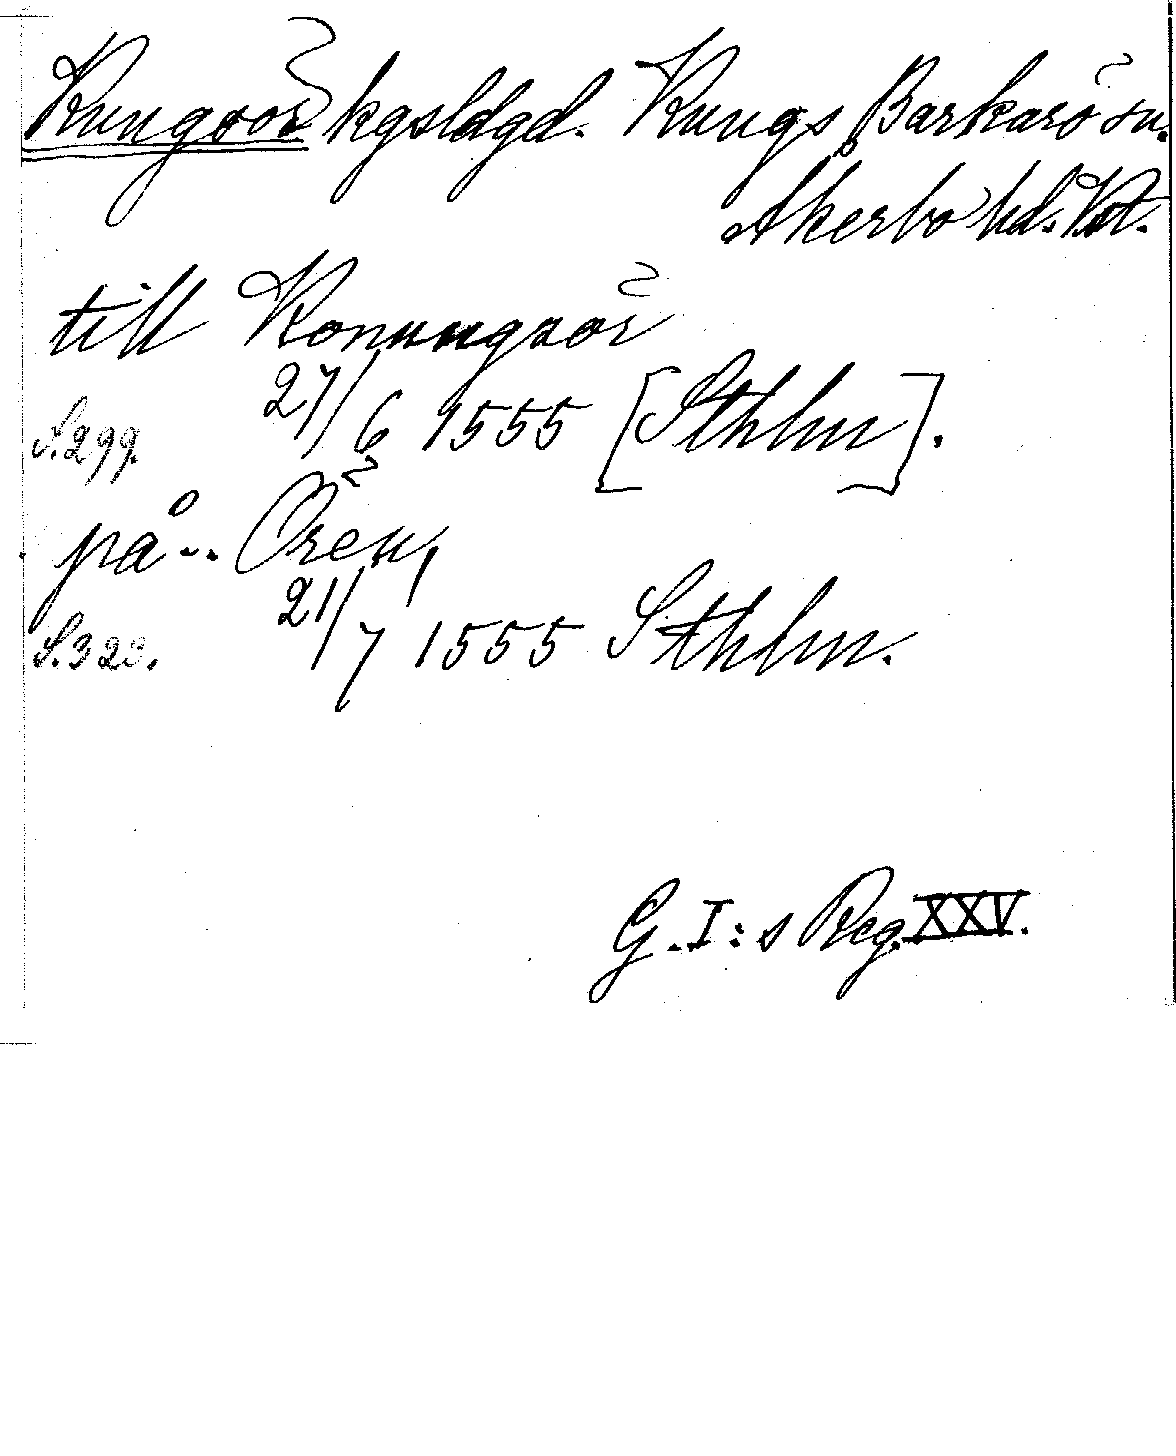 Kungsör kgsldgd. Kungs Barkarö sn.
Åkerbo hd. Vstm.
till Konungsör
27/6 1555 [Sthlm].
S. 299.
på .. Ören,
21/7 1555 Sthlm.
S. 323.
G. I:s Reg. XXV.